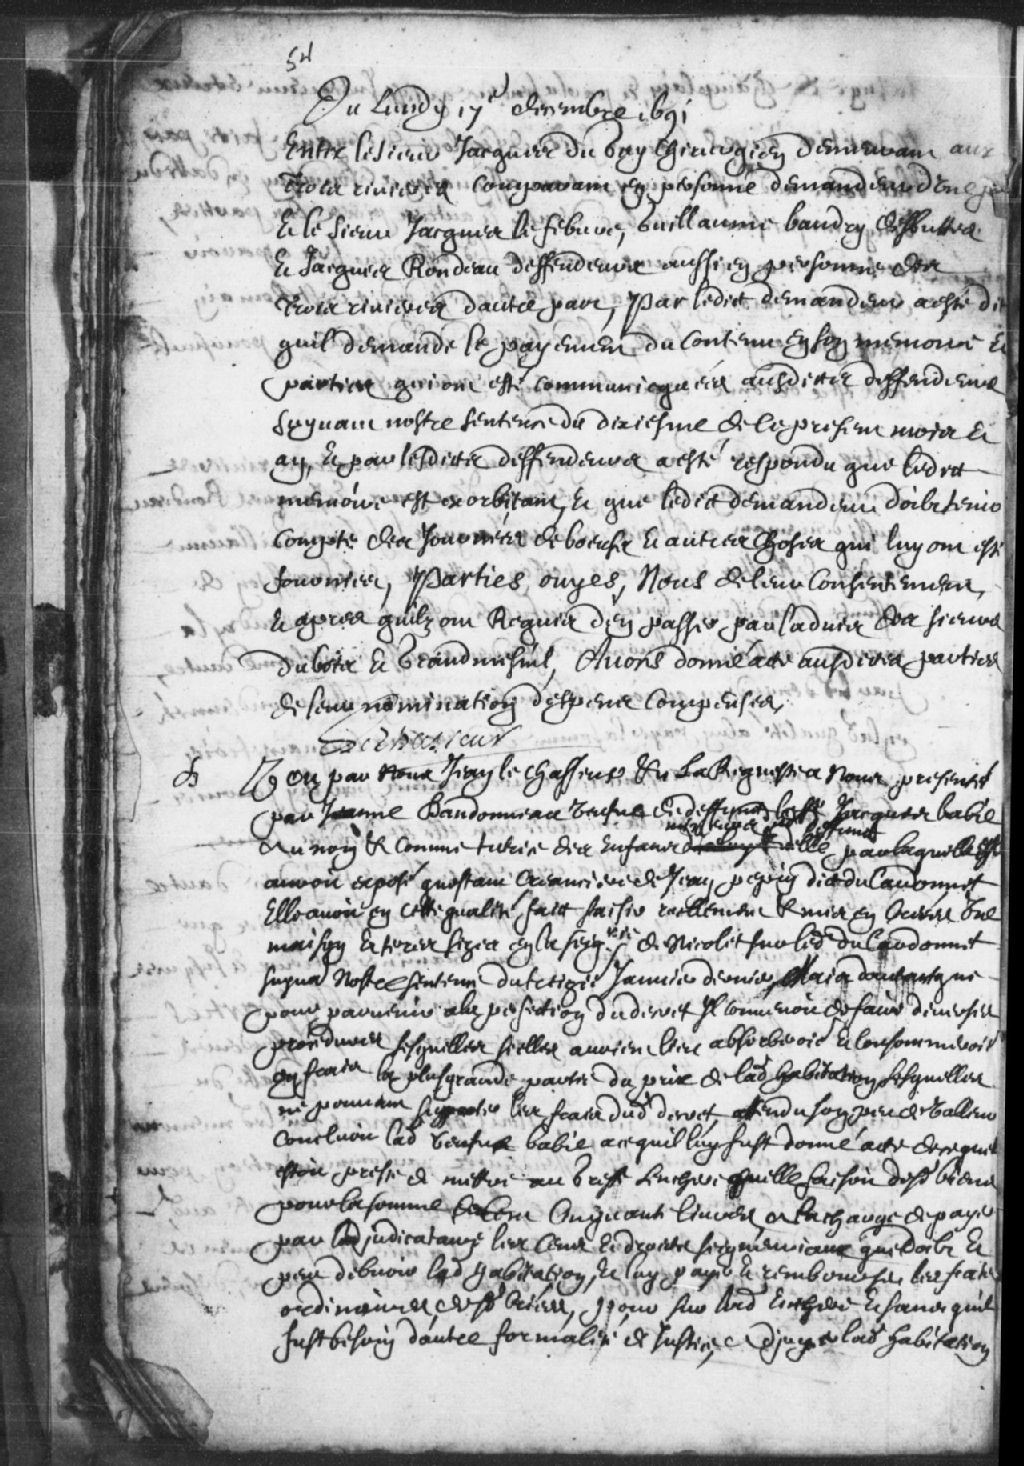 54
Du Lundy 17e decembre 1691
Entre le sieur Jacques du Bay chirurgien demeurant aux
trois rivieres comparant en personne demandeur d'une part
Et le sieur Jacques lefebure, Guillaume baudry
Et Jacques Rondeau deffendeurs aussi en personne des
trois rivieres dautre part, Par ledit demandeur a esté dit
quil demande le payement du contenu en son memoire et
parties qui ont esté communicquées ausdites deffendeurs
suyvant nostre sentence du dixiesme de ce present mois et
an, Et par lesdites deffendeurs a esté respondu que ledit
memoire est exorbitant, et que ledit demandeur doibt tenir
compte des journées de boeufs et autres choses qui luy ont esté
fournies, Parties ouyes, Nous de leur consentement,
Et apres quilz ont Requis d'en passer par l'advis des sieurs
dubois et Grandmesnil, Avons donné acte ausdites parties
de leur nomination despens compensés,
Veu par Nous Jean le Chasseur la Requeste a Nous presentée
par Jeanne Dandonneau veufve de deffunct Jacques babie
au nom et comme tutrice des Enfans par laquelle
auroit exposé questant creanciere de Jean pepin dit du Cardonnet
Elle auroit en cette qualité fait saisir reellement & mis en criées une
maison et terres sizes en la seigrie de Nicolet sur led du Cardonnet
suyvt Nostre sentence du Janvier dernier, Mais dautant que
pour parvenir a la perfection du decret Il conviendroit faire diverses
procedures lesquelles absorberoient et consommeroient
en frais la plus grande partie du prix de lad habitation, lesquelles
ne pouvant supporter les frais dud decret, attendu son peu de valleur
concluoit lad veufve babie a ce quil luy fust donné acte de ce quel
estoit preste de mettre enchere quelle faisoit desd biens
pour la somme de Cent Cinquante livres a la charge de payer
par ladjudicataire les Cens et droits seigneuriaux que doibt et
peut debvoir lad habitation, Et luy payer et rembourser les frais
ordinaires de criées, pour sur lad Enchere et sans quil
fust besoin d'autre formalité de justice, adjuger lad habitation